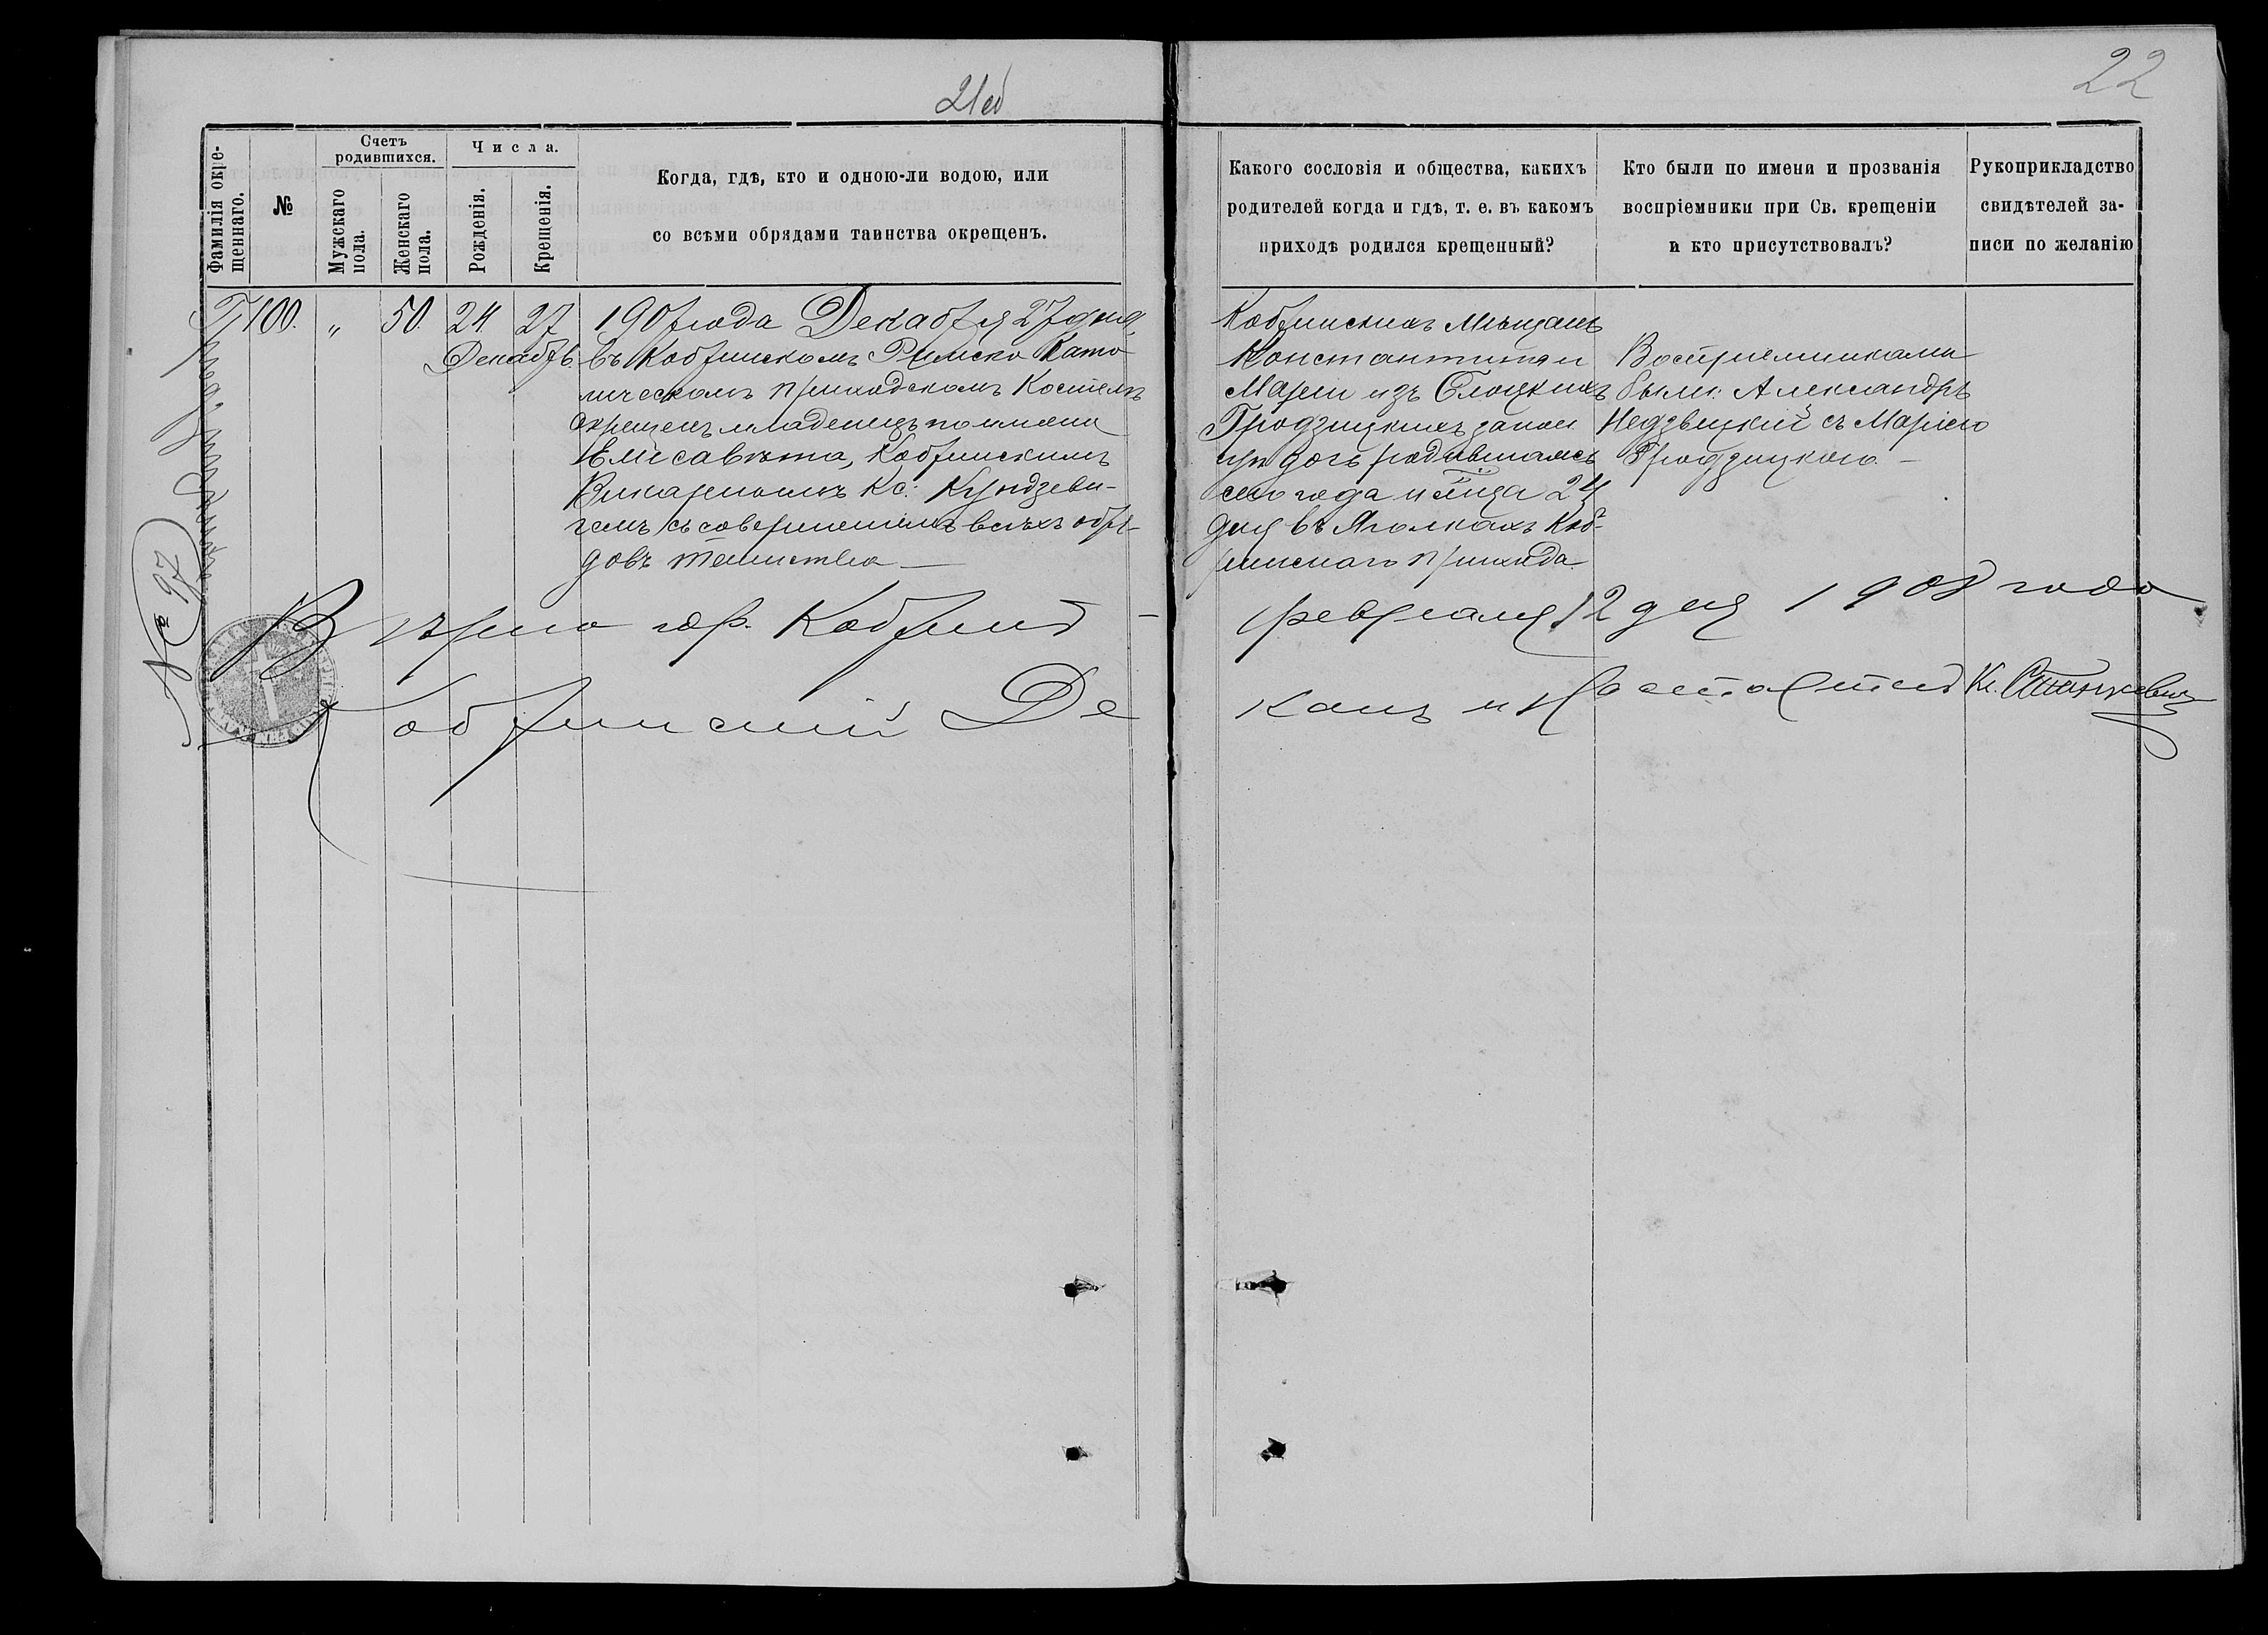 21об
22
Фамилія окре-
щеннаго.
№
Счетъ
родившихся.
Мужскаго
пола.
Женскаго
пола.
Числа.
Рожденія.
Крещенія.
Когда, гдѣ, кто и одною-ли водою, или
со всѣми обрядами таинства окрещенъ.
Какого сословія и общества, какихъ
родителей когда и гдѣ, т. е. въ какомъ
приходѣ родился крещенный?
Кто были по имени и прозванія
воспріемники при Св. крещеніи
и кто присутствовалъ?
Рукоприкладство
свидѣтелей за-
писи по желанію
100. „ 50. 24 27
Декабр.
1907 года Декабря 27 дня
въ Кобринскомъ Римско Като
лическомъ приходскомъ Костелѣ
окрещенъ младенецъ по имени
Елисавѣта, Кобринскимъ
Викарнымъ Кс: Кундзеви-
чемъ съ совершеніемъ всѣхъ обря-
довъ таинства —
Кобринскихъ Мѣщанъ
Константина и
Маріи изъ
Гродзицкихъ закон
ур дочь родившаяся
сего года и м̃ца 24
дня въ Яголкахъ Коб-
ринскаго прихода.
Воспріемниками
были: Александръ
Недзвецкій съ Маріею
Гродзицкою. —
№ 97
Вѣрно гор. Кобринъ —
февраля 12 дня 1908 года
Кобринскій Де
канъ и Настоятель Кс. Станкевич